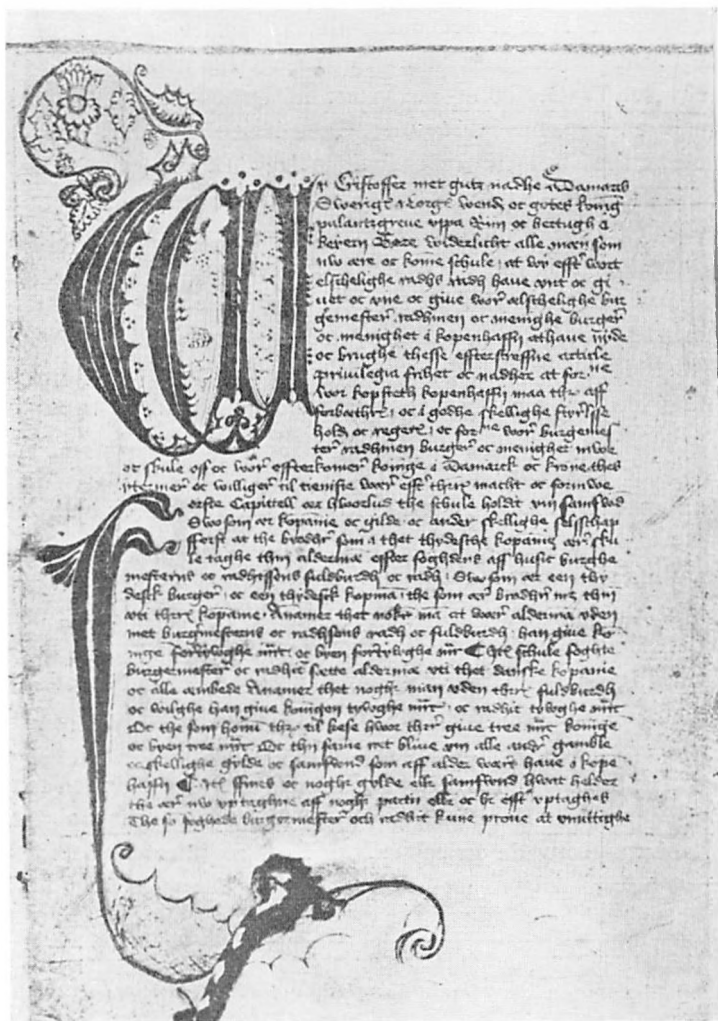 Wi Cristoffer met gutz nadhe i Danmarks
Swerigis Norges Wendes oc gotes konig
palantzgreve uppa Riin oc hertugh i
beyern Gøre widerlicht alle mæn som
nw ære oc kome schule at wy efft wort
elschelighe radhs radh have unt oc gi
vet oc une oc give wor elschelighe bur
gemester radhmen oc menighe burger
oc menighet i kopenhaffn at have nyde
oc brughe thesse effterskreffne article
privilegia frihet oc nadher at for ne
wor kopsteth kopenhaffn maa thes aff
forbæthres oc i godhe skellighe styrilse
holdes oc regeres oc for ne wor burgemes
ter radhmen burger oc menighet mwe
oc skule oss oc wore effterkomere koninge i Damarck oc krone thes
ytermer oc williger til tieniste være efft there macht oc formwe
Første Capittell ær hworlund the schule holdit um samfund
Swo som ær kopanie oc gilde oc ander skellighe selsschap
fførst at the brødhre som i thet thydesche kopanie ære sku
le taghe thin alderman effter foghdens aff husit burghe
mesterens oc radhissens fuldburdh oc radh Swo som ær een thy
desck burger oc een thydesck kopman the som ær brødhre mz thin
uti there kopanie Anamer thet noker man at være alderman uden
met burgemesterens oc radhsens radh oc fuldburdh han give ko
ninge fortyvghe marc oc byen fortyvghe marc Item schule foghte
burgermester oc radhit sætte alderman uti thet danske kopanie
oc alle æmbede Anamer thet noghr man uden there fuldburdh
oc wilghe han give koningen tyvoghe marc oc radhit tyvoghe marc
Oc the som honum ther til kese hwor there give tree marc koninge
oc byen tree marc Oc thin same ræt blive um alle andre gamble
skellighe gylde oc samfwnd som aff alder wæret have i kope
haffn Item ffines oc noghr gylde eller samfwnd hwat helder
the ær nw uptaghne aff noghr partii eller oc hr efft uptaghes
The so foghede burgermester och radhit kune prove at unuttighe